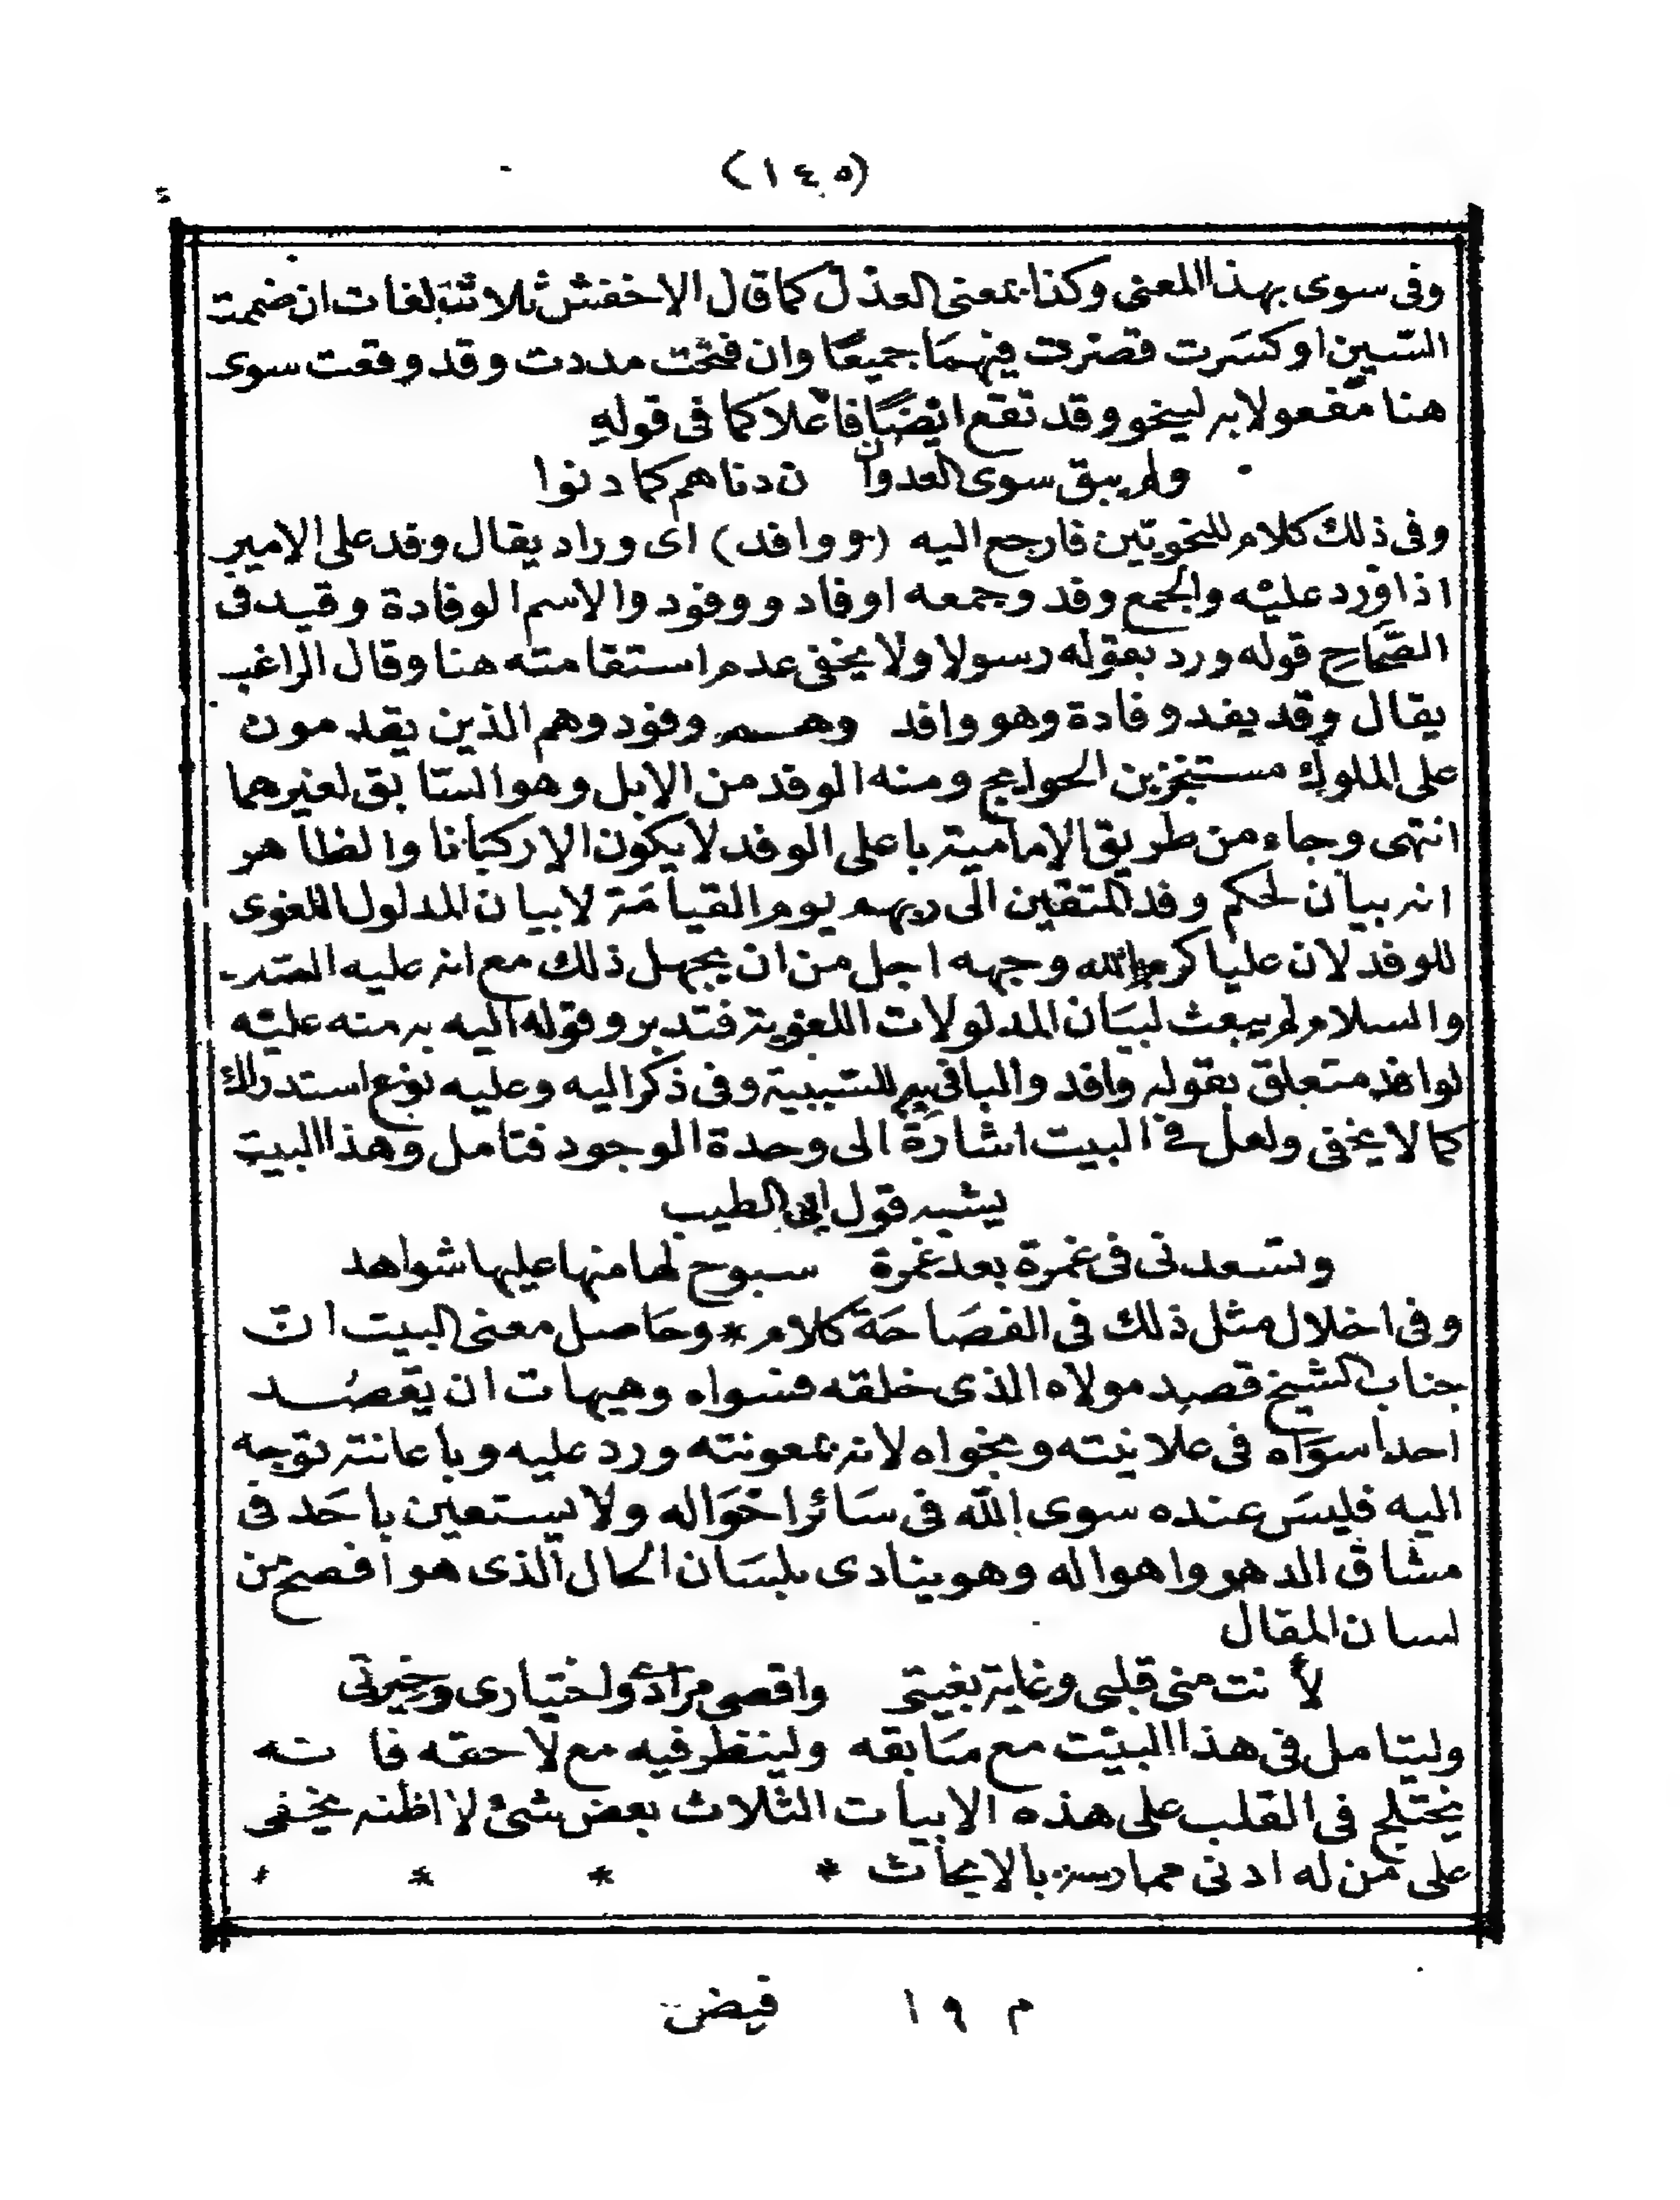 (١٤٥)
وفى سوى بهذا المعنى وكذا بمعنى العذل كما قال الاخفش ثلاث لغات ان ضممت
السّين او كسَرت قصرت فيهمَا جميعًا وان فتحت مددت وقد وقعت سوى
هنا مفعولا به لينحو وقد تقع ايضًا فاعلا كما فى قولهِ
ولم يبق سوى العدوان دناهم كما دنوا
وفى ذلك كلام للنحويّين فارجع اليه (ووافد) اى وراد يقال وفد على الامير
اذا ورد عليْه والجمع وفد وجمعه اوفاد ووفود والاسم الوفادة وقيد فى
الصّحاح قوله ورد بقوله رسولا ولا يخفى عدم استقامته هنا وقال الراغب
يقال وفد يفد وفادة وهو وافد وهم وفود وهم الذين يقدمون
على الملوك مستنجزين الحوايج ومنه الوفد من الابل وهو السّابق لغيرهما
انتهى وجاء من طريق الامامية يا على الوفد لا يكون الا ركبانا والظاهر
انه بيان لحكم وفد المتقين الى ربهم يوم القيامَة لا بيان المدلول اللغوى
للوفد لان عليا كرم الله وجهه اجل من ان يجهل ذلك مع انه عليه الصّ
والسلام لم يبعث لبيَان المدلولات اللغوية فتدبر وقوله اليه به منه عليْه
لوافد متعلق بقوله وافد والبا فى به للسّببية وفى ذكر اليه وعليه نوع استدراك
كما لا يخفى ولعل فى البيت اشارَة الى وحدة الوجود فتامل وهذا البيت
يشبه قول ابى الطيب
وتسعدنى فى غمرة بعد غمرة سبوح لها منها عليها شواهد
وفى اخلال مثل ذلك فى الفصَاحَة كلام * وحَاصل معنى البيت انّ
جناب الشيخ قصد مولاه الذى خلقه فسواه وهيهات ان يقصُد
احدا سوَاه فى علانيته ونجواه لانه بمعونته ورد عليه وباعانته توجه
اليه فليسَ عنده سوى الله فى سَائر احْوَاله ولا يستعين باحَد فى
مشاق الدهر واهواله وهو ينادى بلسَان الحال الذى هو افصح من
لسان المقال
لأنت منى قلبى وغاية بغيتى واقصى مرادى واختيارى وخيرتى
وليتامل فى هذا البيْت مع سَابقه ولينظر فيه مع لاحقه فانه
يختلج فى القلب على هذه الابيات الثلاث بعض شئ لا اظنه يخفى
على من له ادنى ممارسة بالابحاث * * * *
م ١٩ فيض